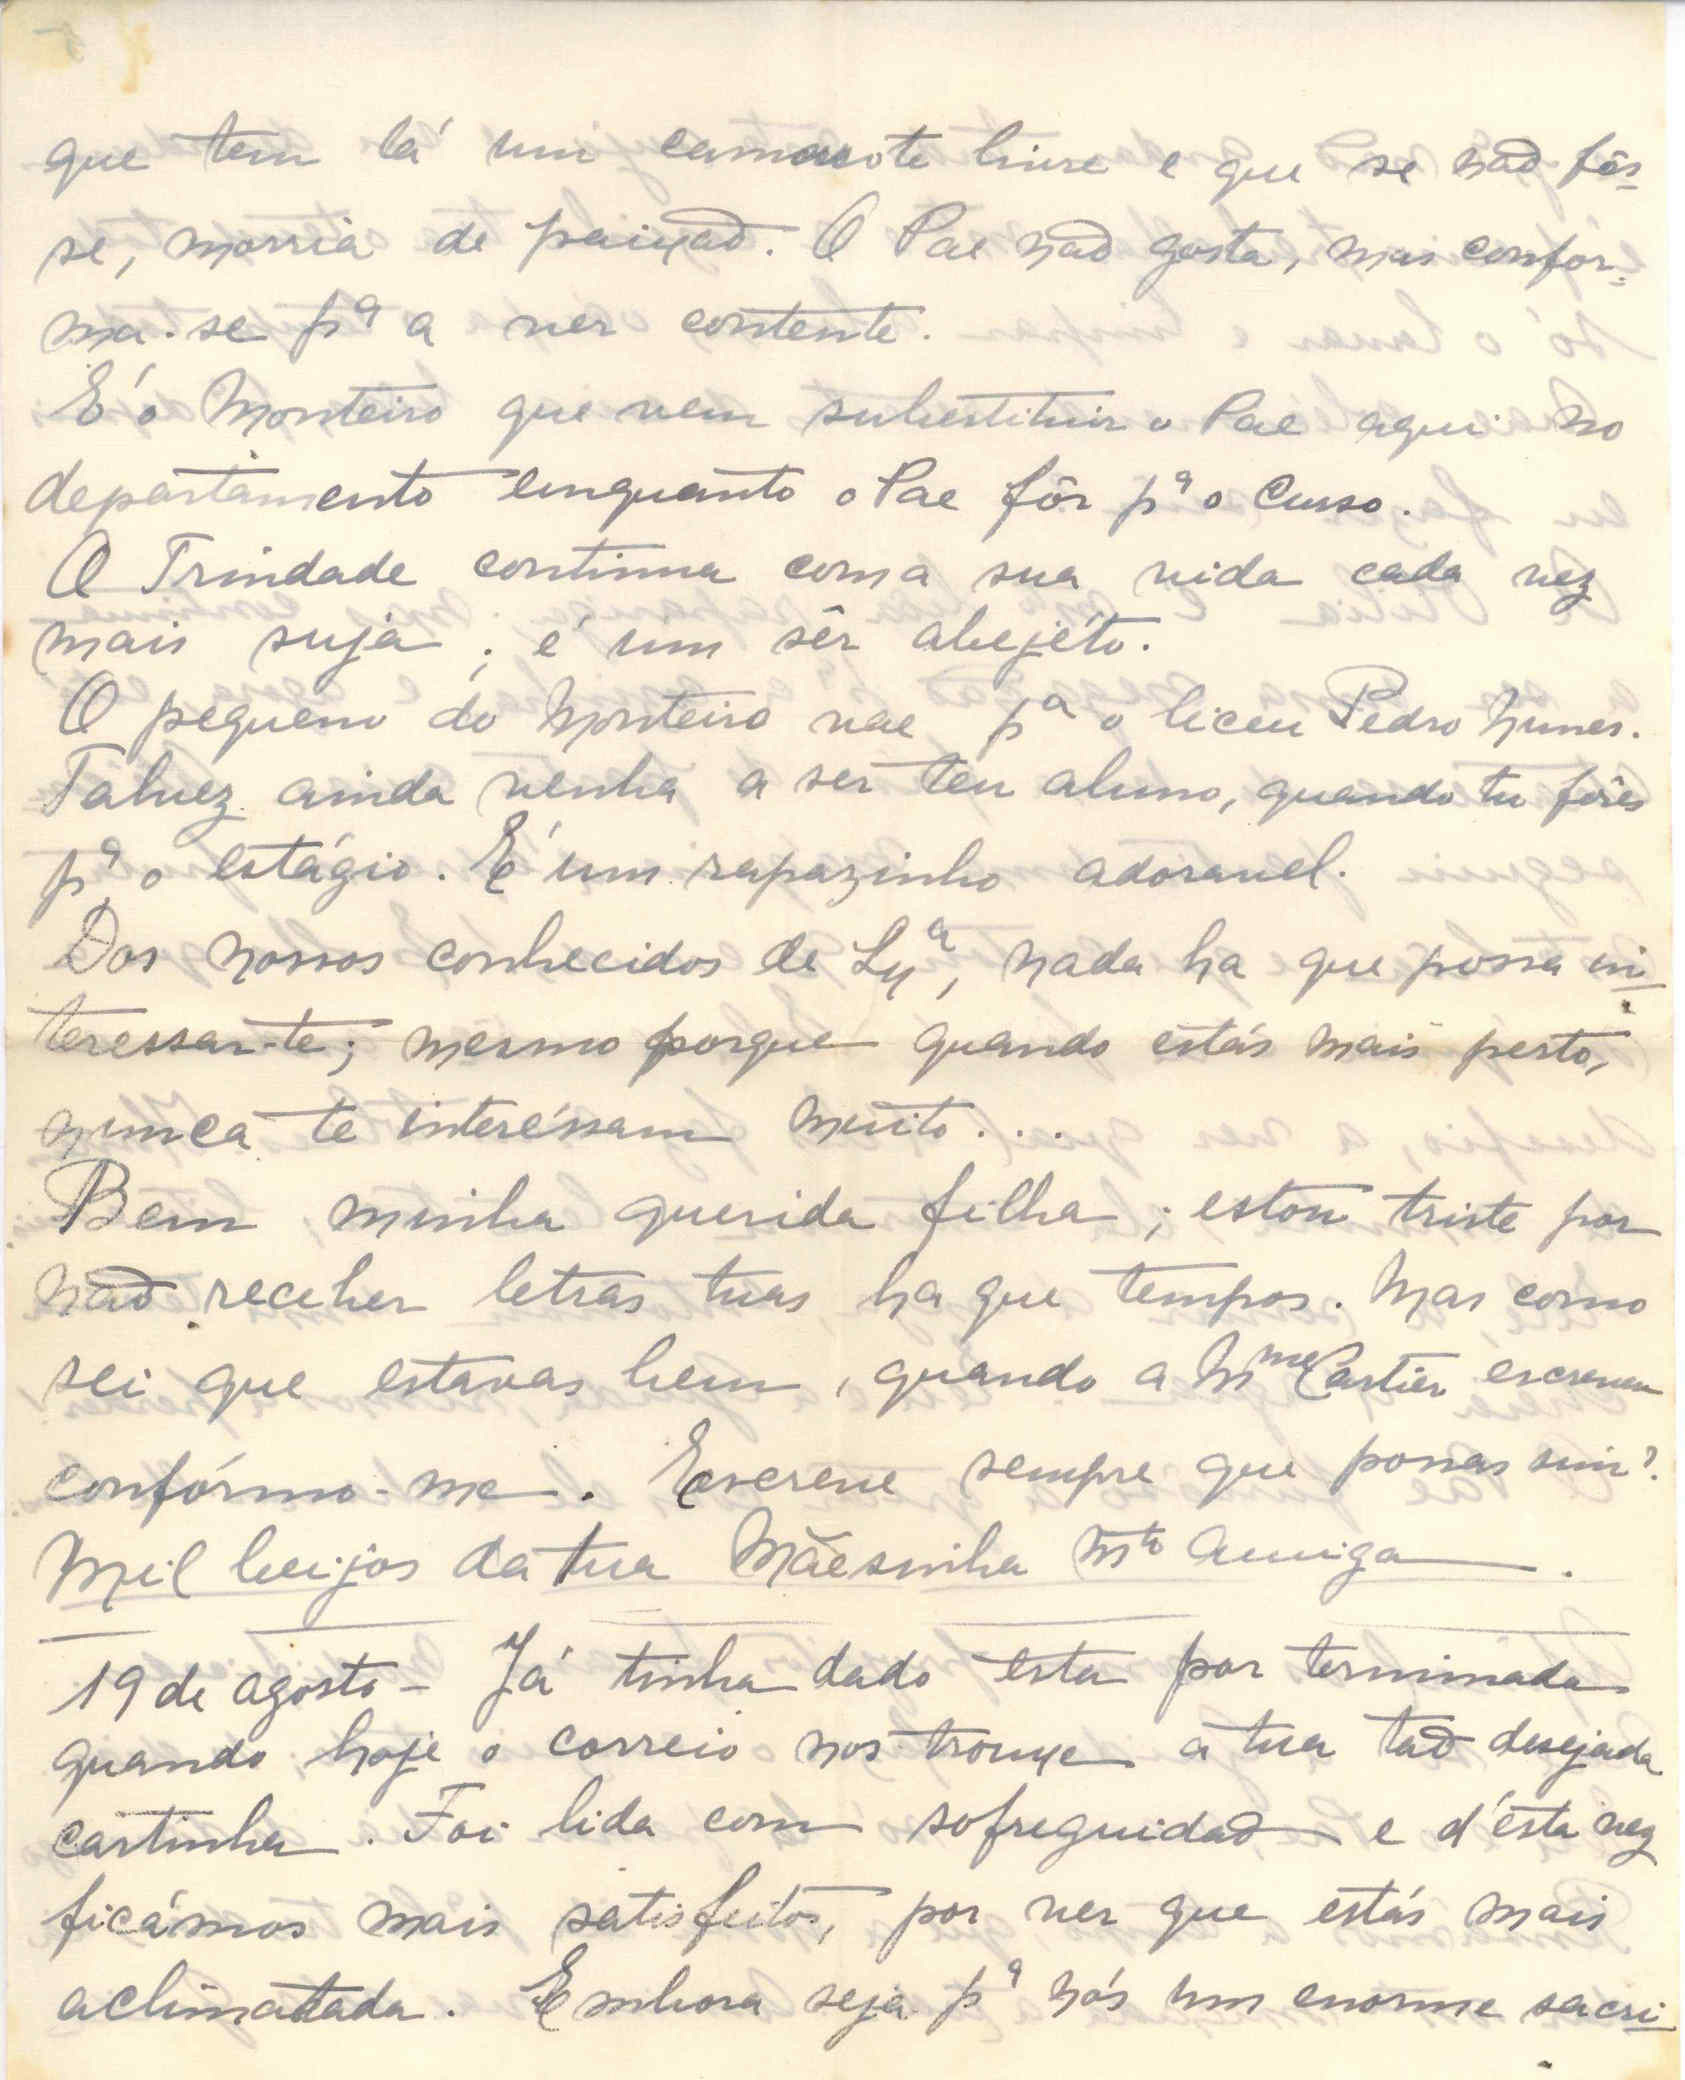 que tem lá um camarote livre e que se não fôs-
se, morria de paixão. O Pae não gosta, mas confor-
ma-se pª a ver contente.
E' o Monteiro que vem substituir o Pae aqui no
departamento enquanto o Pae fôr pª o Curso.
O Trindade continua com a sua vida cada vez
mais suja; é um sêr abejéto.
O pequeno do Monteiro vae pª o liceu Pedro Nunes.
Talvez ainda venha a ser teu aluno, quando tu fôres
pª o estágio. E' um rapazinho adoravel.
Dos nossos conhecidos de Lxª, nada ha que possa in-
teressar-te; mesmo porque quando estás mais perto,
nunca te interéssam muito...
Bem minha querida filha; estou triste por
não receber letras tuas, ha que tempos. Mas como
sei que estavas bem, quando a Mme Cartier escreveu
confórmo-me. Escreve sempre que possas sim?
Mil beijos da tua Mãesinha mto Amiga.
19 de agosto - Já tinha dado esta por terminada
quando hoje o correio nos trouxe a tua tão desejada
cartinha. Foi lida com sofreguidão e d'esta vez
ficámos mais satisfeitos, por ver que estás mais
aclimatada. Embora seja pª nós um enorme sacri-